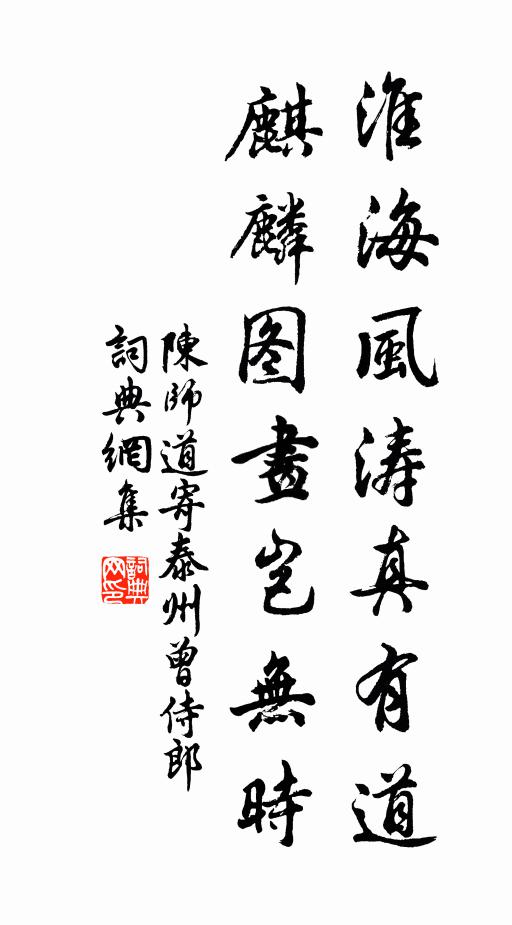 淮海風涛真有道
麒麟图畫岂無時
陳師道寄泰州曾侍郎
詞典網集
詞典网印